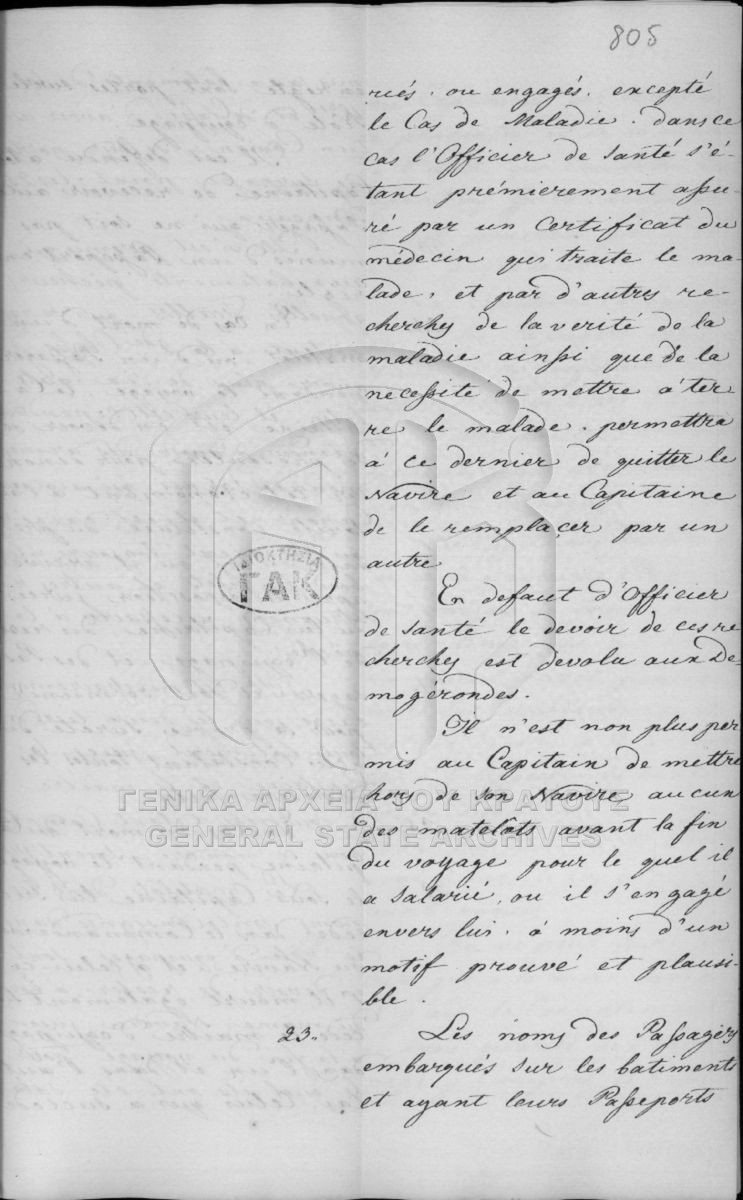 805
riés, ou engagés, excepté
le Cas de Maladie. dans ce
cas l'Officier de santé s'é-
tant prémierement assu-
ré par un Certificat du
médecin qui traite le ma-
lade, et par d'autres re-
cherches de la verité de la
maladie ainsi que de la
necessité de mettre à ter-
re le malade. permettra
à ce dernier de quitter le
Navire et au Capitaine
de le remplaçer par un
autre
En defaut d'Officier
de santé le devoir de ces re
cherches est devolu aux De-
mogérondes.
Il n'est non plus per
mis au Capitain de mettre
hors de son Navire aucun
des matelôts avant la fin
du voyage pour le quel il
a salarié, ou il s'engagé
envers lui, à moins d'un
motif prouvé et plausi-
ble.
23. Les noms des Passagers
embarqués sur les batiments
et ayant leurs Passeports
ΙΔΙΟΚΤΗΣΙΑ
ΓΑΚ
ΓΕΝΙΚΑ ΑΡΧΕΙΑ ΤΟΥ ΚΡΑΤΟΥΣ
GENERAL STATE ARCHIVES